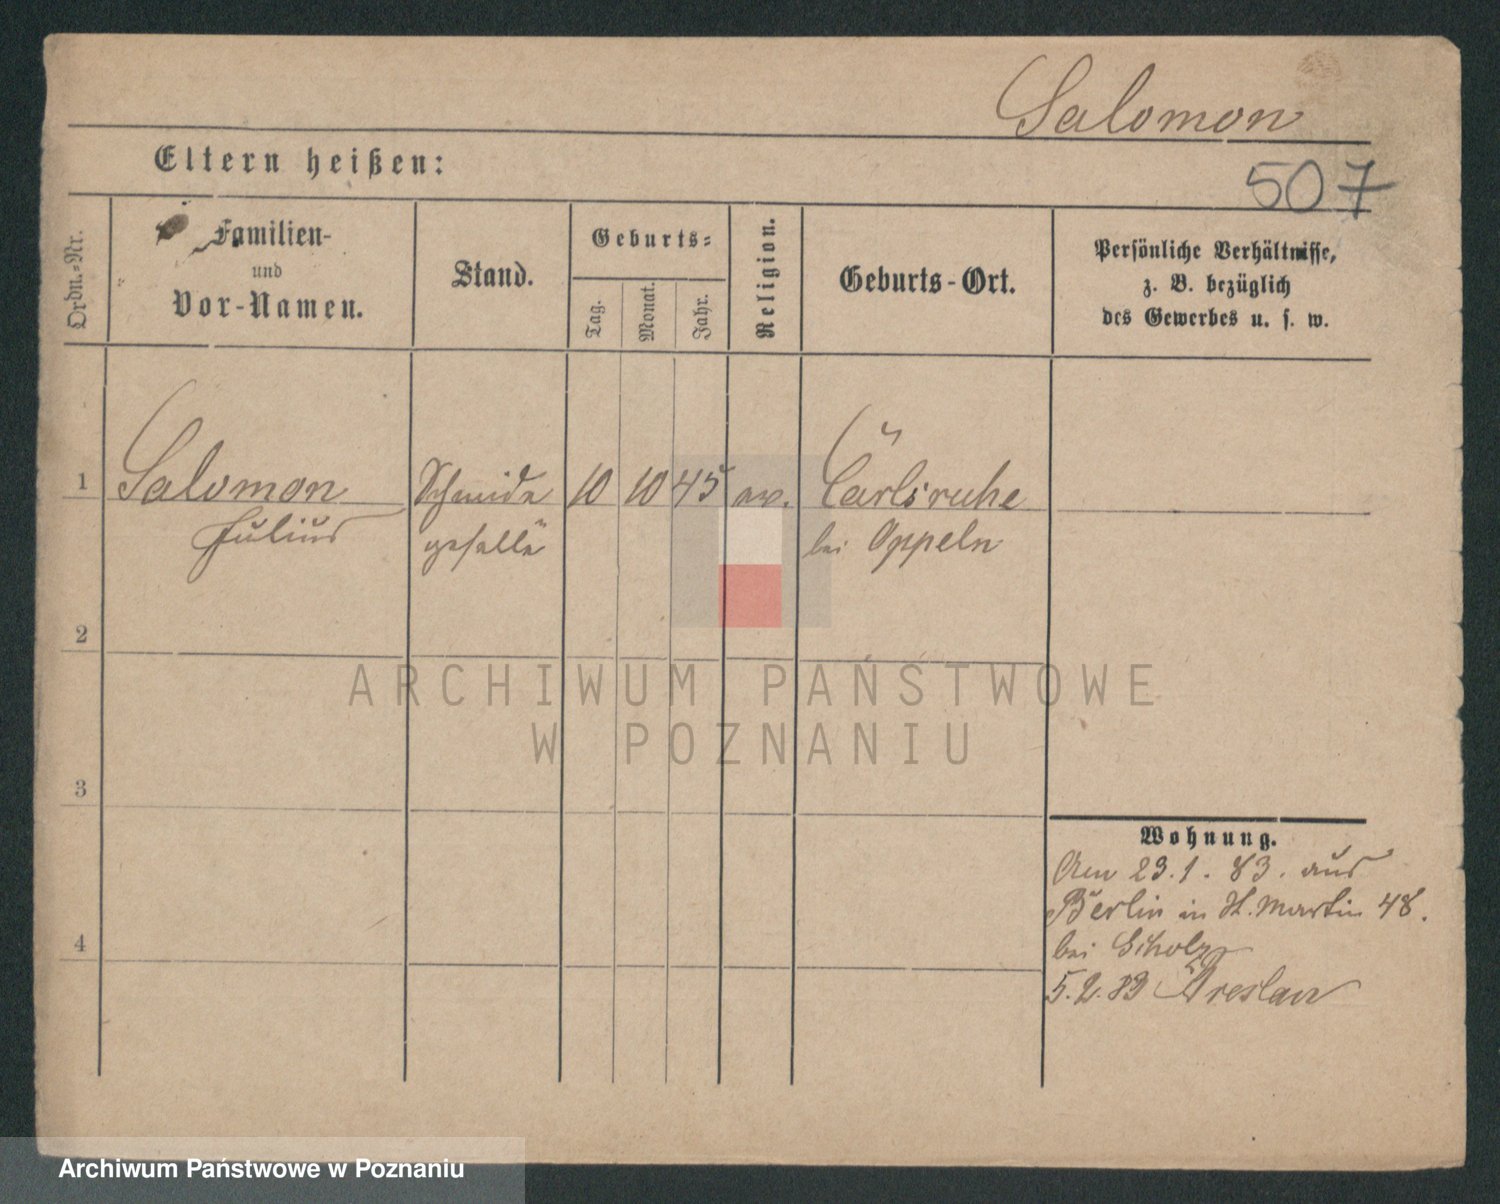 Salomon
Eltern heißen:
507
Ordn.-Nr.
Familien-
und
Vor-Namen.
Stand.
Geburts-
Tag.
Monat.
Jahr.
Religion.
Geburts-Ort.
Persönliche Verhältnisse,
z. B. bezüglich
des Gewerbes u. s. w.
1
Salomon
Julius
Schmide
geselle
10
10
45
ev.
Carlsruhe
bei Oppeln
2
3
4
Wohnung.
Am 23.1.83. aus
Berlin in St. Martin 48.
bei Scholz
5.2.83 Breslau
ARCHIWUM PAŃSTWOWE
W POZNANIU
Archiwum Państwowe w Poznaniu